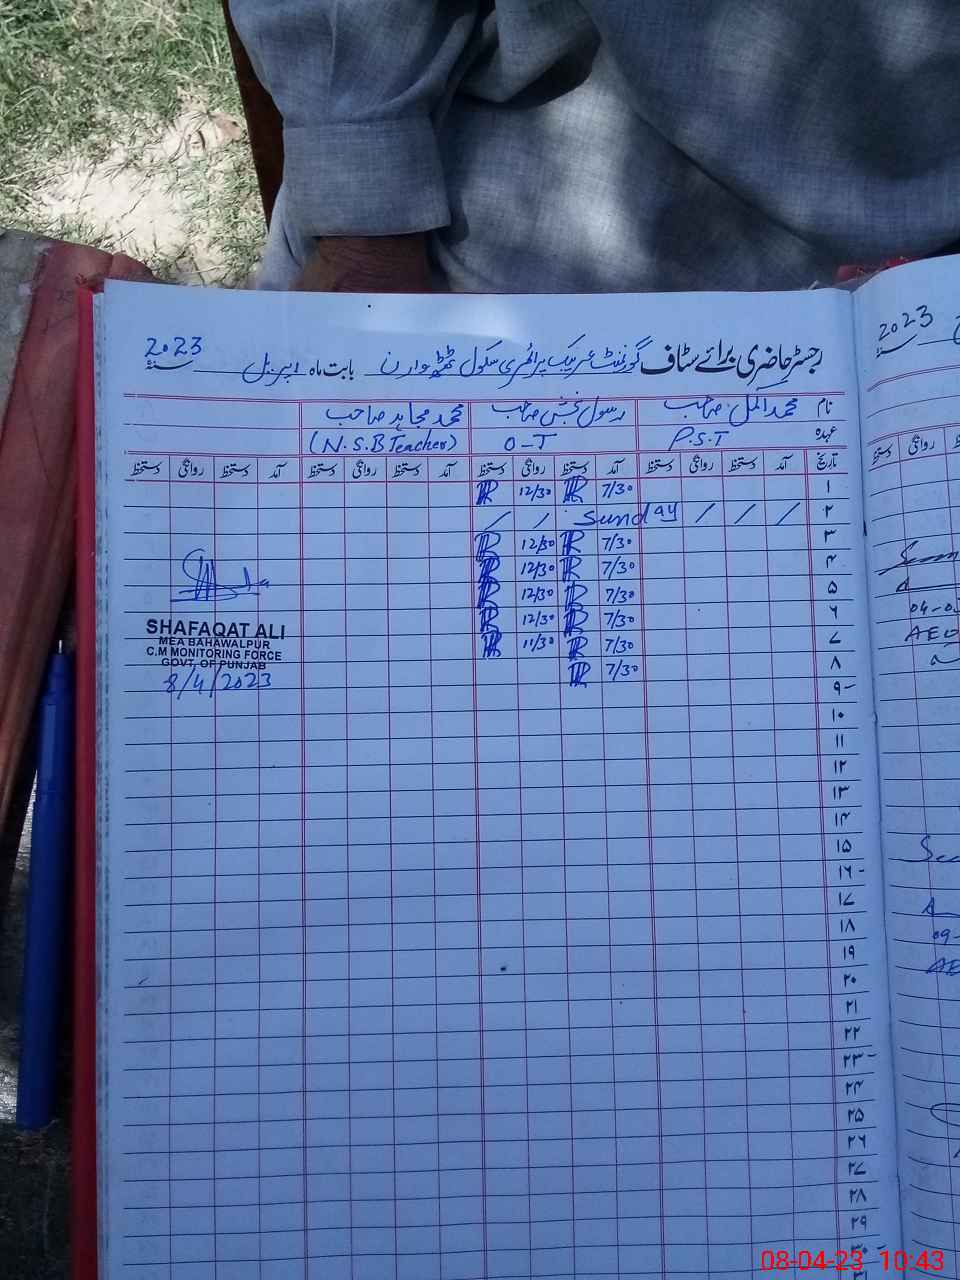 رجسٹر حاضری برائے سٹاف گورنمنٹ عریبک پرائمری سکول ٹھٹھہ وارن بابت ماہ اپریل سنہ 2023
نام محمد اکمل صاحب رسول بخش صاحب محمد مجاہد صاحب
عہدہ P.S.T O-T (N.S.B Teacher)
تاریخ آمد دستخط روانگی دستخط آمد دستخط روانگی دستخط آمد دستخط روانگی دستخط آمد دستخط روانگی دستخط
۱ 7/30 12/30
۲ / / / Sunday / /
۳ 7/30 12/30
۴ 7/30 12/30
۵ 7/30 12/30
۶ 7/30 12/30
۷ 7/30 11/30
۸ 7/30
۹
۱۰
۱۱
۱۲
۱۳
۱۴
۱۵
۱۶
۱۷
۱۸
۱۹
۲۰
۲۱
۲۲
۲۳
۲۴
۲۵
۲۶
۲۷
۲۸
۲۹
۳۰
۳۱
SHAFAQAT ALI
MEA BAHAWALPUR
C.M MONITORING FORCE
GOVT. OF PUNJAB
8/4/2023
2023 سنہ
دستخط روانگی
08-04-23 10:43